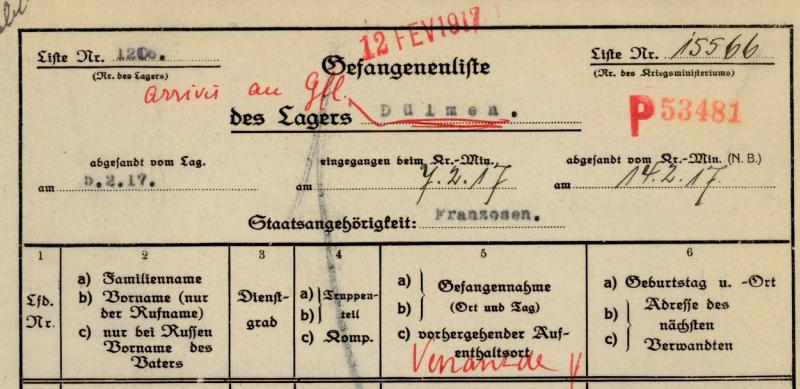 12 FEV 1917
Liste Nr. 1206.
(Nr. des Lagers)
Gefangenenliste
Liste Nr. 15566
(Nr. des Kriegsministeriums)
arrivés au Gfl.
des Lagers Dülmen.
P 53481
abgesandt vom Lag.
am 5.2.17.
eingegangen beim Kr.-Min.
am 7.2.17
abgesandt vom Kr.-Min. (N. B.)
am 14.2.17.
Staatsangehörigkeit: Franzosen.
1
Lfd.
Nr.
2
a) Familienname
b) Vorname (nur
der Rufname)
c) nur bei Russen
Vorname des
Vaters
3
Dienst-
grad
4
a) Truppen-
b) teil
c) Komp.
5
a) Gefangennahme
b) (Ort und Tag)
c) vorhergehender Auf-
enthaltsort
6
a) Geburtstag u. -Ort
b) Adresse des
c) nächsten
Verwandten